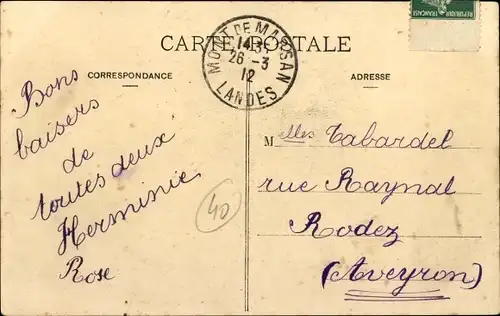 CARTE POSTALE
MONT DE MARSAN
26 -3
12
LANDES
CORRESPONDANCE
ADRESSE
Bons
baisers
de
toutes deux
Herminie
Rose
40
Melles Tabardel
rue Raynal
Rodez
(Aveyron)